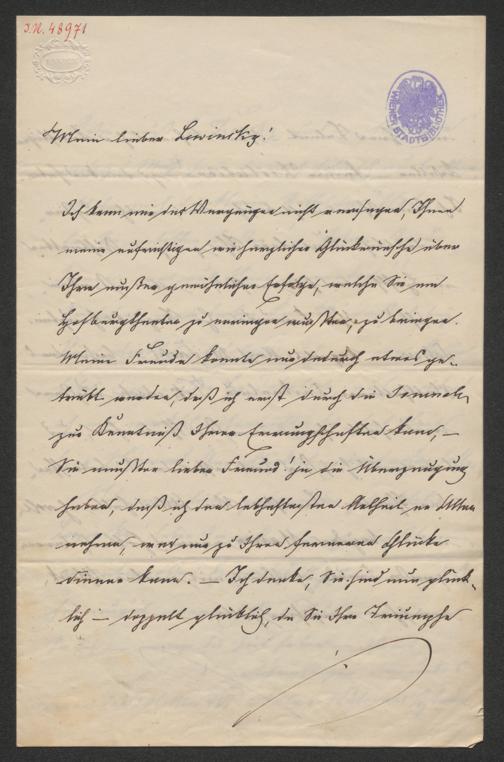 I.N. 48971
WIENER STADTBIBLIOTHEK
Mein lieber Lewinsky!
Ich kann mir das Vergnügen nicht versagen, Ihnen
meine aufrichtigen wie herzlichen Glückwünsche über
Ihre außer gewöhnlichen Erfolge, welche Sie am
Hofburgtheater zu erringen wußten, zu bringen.
Meine Freude konnte nur dadurch etwas ge-
trübt werden, daß ich erst durch die Journale
zur Kenntniß Ihrer Errungschaften kam, –
Sie mußten lieber Freund! ja die Überzeugung
haben, daß ich den lebhaftesten Antheil an Allem
nehme, was nur zu Ihrem ferneren Glücke
dienen kann. – Ich denke, Sie sind nun glück-
lich – doppelt glücklich, da Sie Ihre Triumphe